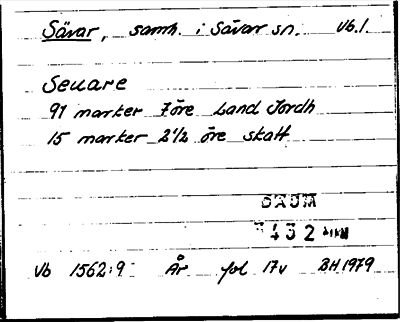 Sävar, samh. i Sävar sn. Vb.
Seuare
91 marker 7 öre Land Jordh
15 marker 2½ öre skatt
DAUM
432
Vb 1562:9 År fol 17v BH 1979